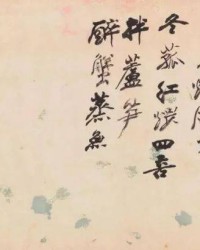 冬菰紅燜四喜
拌蘆筍
醉蟹蒸魚